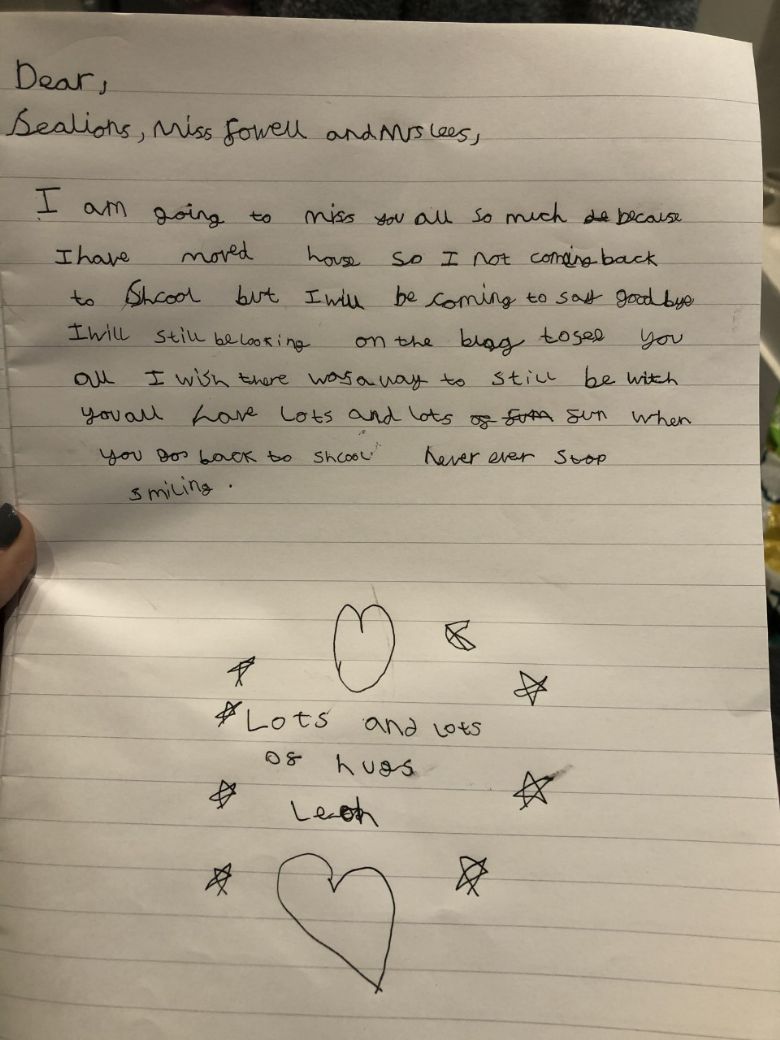 Dear,
Sealions, Miss Fowell and Mrs Lees,
I am going to miss you all so much because
I have moved house so I not coming back
to Shcool but I will be coming to say good bye
I will still be looking on the blog to see you
all I wish there was a way to still be with
you all have lots and lots of fun when
you go back to shcool never ever stop
smiling.
Lots and lots
of hugs
Leah